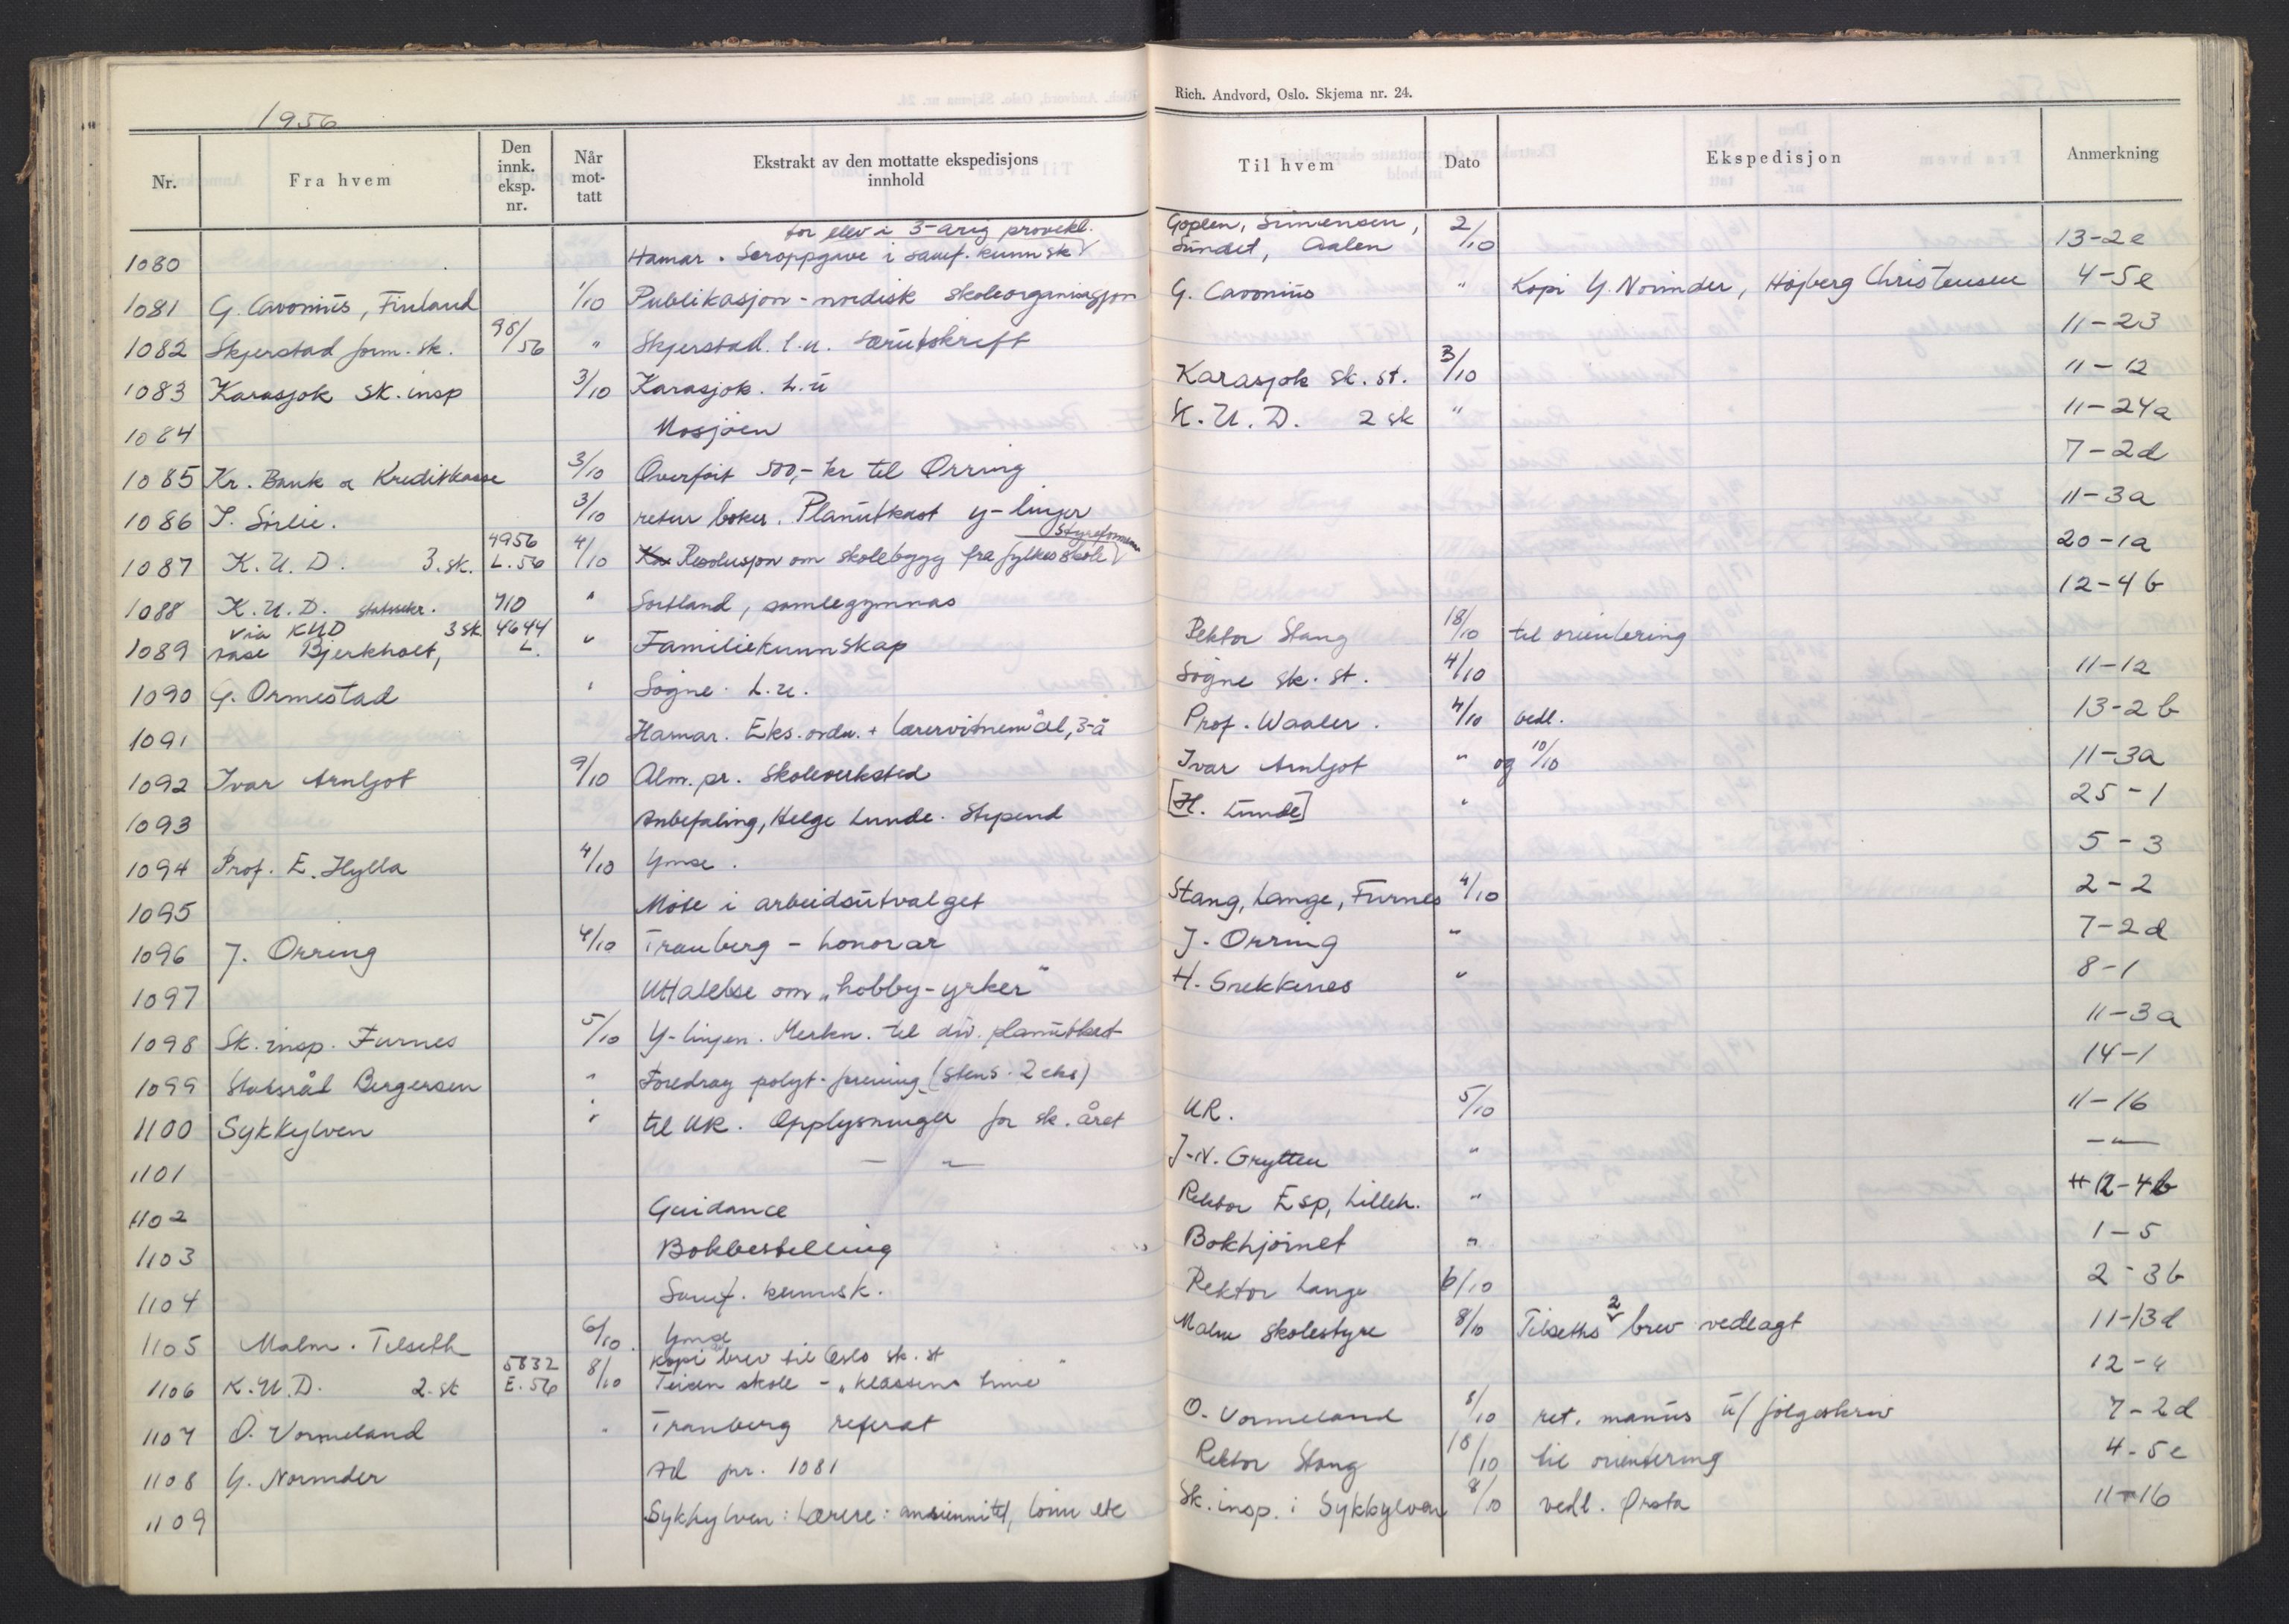 Rich. Andvord, Oslo. Skjema nr. 24.
1956
Nr. Fra hvem Den innk. eksp. nr. Når mottatt Ekstrakt av den mottatte ekspedisjons innhold Til hvem Dato Ekspedisjon Anmerkning
for elev i 3-årig prøvekl.
1080 Hamar. Særoppgave i samf.kunnsk Goplen, Simensen, Sundet, Aalen 2/10 13-2e
1081 G. Cavonius, Finland 1/10 Publikasjon - nordisk skoleorganisasjon G. Cavonius " Kopi Y. Norinder, Højberg Christensen 4-5e
1082 Skjerstad form. sk. 98/56 " Skjerstad. l.u. særutskrift 11-23
1083 Karasjok sk. insp 3/10 Karasjok. L.u Karasjok sk. st. 3/10 11-12
1084 Mosjøen K.U.D. 2 sk " 11-24a
1085 Kr. Bank & Kreditkasse 3/10 Overført 500,- kr til Orring 7-2d
1086 S. Sørlie. 3/10 retur bøker. Planutkast y-linjer 11-3a
1087 K.U.D. 3. sk. 4956 L.56 4/10 Resolusjon om skolebygg fra fylkesskole 20-1a
1088 K.U.D. statssekr. 710 " Sortland, samlegymnas 12-4b
via KUD
1089 Aase Bjerkholt, 3 sk. 4644 L. " Familiekunnskap Rektor Stang 18/10 til orientering
1090 G. Ormestad " Søgne. L.u. Søgne sk. st. 4/10 11-12
1091 Hamar. Eks.ordn. + lærervitnemål, 3-å Prof. Waaler. 4/10 vedl. 13-2b
1092 Ivar Arnljot 9/10 Alm. pr. Skoleverksted Ivar Arnljot " og 10/10 11-3a
1093 Anbefaling, Helge Lunde. Stipend [H. Lunde] " 25-1
1094 Prof. E. Hylla 4/10 Ymse. 5-3
1095 Møte i arbeidsutvalget Stang, Lange, Furnes 4/10 2-2
1096 J. Orring 4/10 Tranberg - honorar J. Orring " 7-2d
1097 Uttalelse om „hobby-yrker" H. Snekkenes " 8-1
1098 Sk. insp. Furnes 5/10 Y-linjen. Merkn. til div. planutkast 11-3a
1099 Statsråd Bergersen " Foredrag polyt. forening (stens. 2 eks) 14-1
1100 Sykkylven " til UR. Opplysninger for sk. året UR. 5/10 11-16
1101 — " — J. N. Grytten " — " —
1102 Guidance Rektor Esp, Lilleh. " 12-4b
1103 Bokbestilling Bokhjørnet " 1-5
1104 Samf. kunnsk. Rektor Lange 6/10 2-3b
1105 Malm. Tilseth 6/10 Ymse Malm skolestyre 8/10 Tilseths 2 brev vedlagt 11-13d
kopi brev til Oslo sk. st
1106 K.U.D. 2. sk 5832 E.56 8/10 Teisen skole - „klassens time" 12-4
1107 O. Vormeland " Tranberg referat O. Vormeland 8/10 ret. manus u/ følgeskriv 7-2d
1108 Y. Norinder Ad nr. 1081 Rektor Stang 18/10 til orientering 4-5e
1109 Sykkylven: Lærere: ansiennitet, lønn etc Sk. insp. i Sykkylven 8/10 vedl. Ørsta 11-16